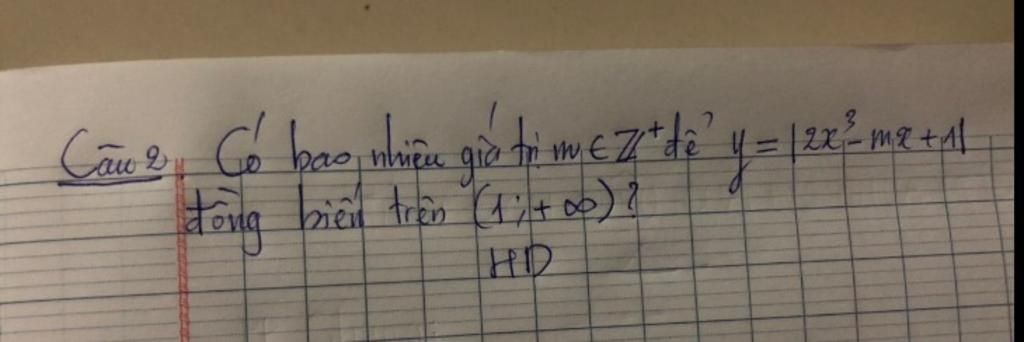 Câu 2. Có bao nhiêu giá trị m ∈ ℤ⁺ để y = |2x³ - mx + 1|
đồng biến trên (1; +∞)?
HD